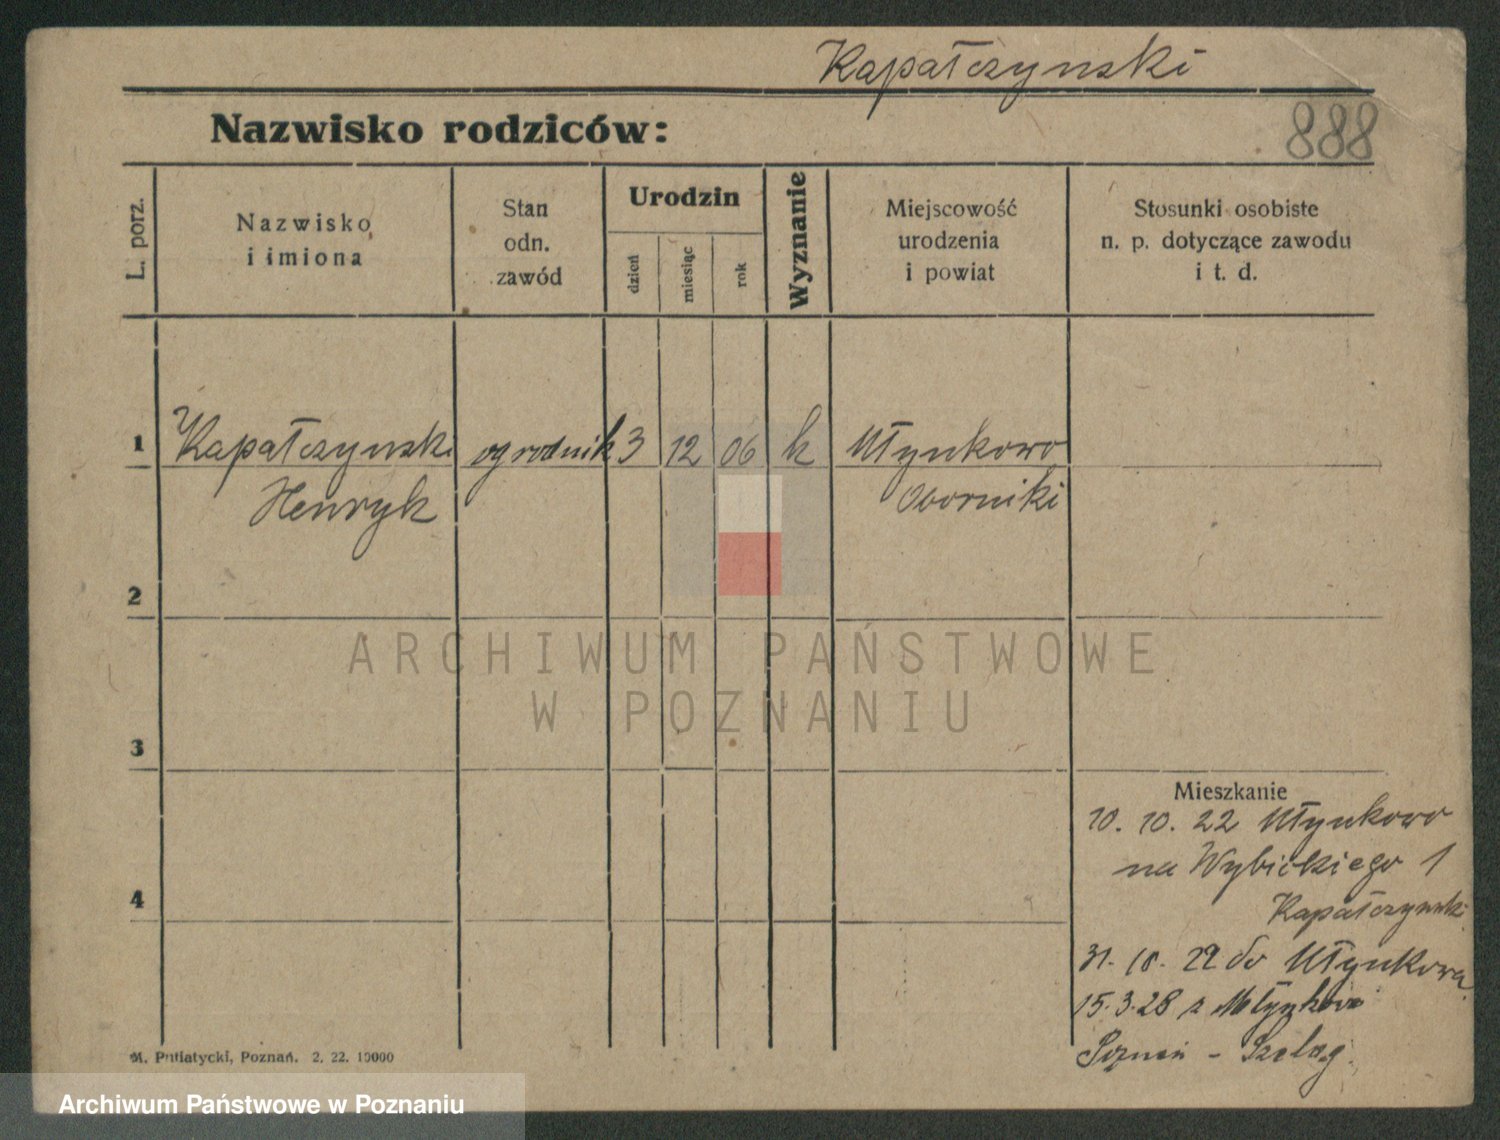 Kapałczynski
Nazwisko rodziców:
888
L. porz.
Nazwisko
i imiona
Stan
odn.
zawód
Urodzin
dzień
miesiąc
rok
Wyznanie
Miejscowość
urodzenia
i powiat
Stosunki osobiste
n. p. dotyczące zawodu
i t. d.
1 Kapałczynski ogrodnik 3 12 06 k Młynkowo
Henryk Oborniki
2
3
4
Mieszkanie
10. 10. 22 Młynkowo
na Wybickiego 1
Kapałczynski
31. 10. 22 do Młynkowa
15.3.28 z Młynkowa
Poznań - Szeląg.
M. Putiatycki, Poznań. 2. 22. 10000
ARCHIWUM PAŃSTWOWE
W POZNANIU
Archiwum Państwowe w Poznaniu